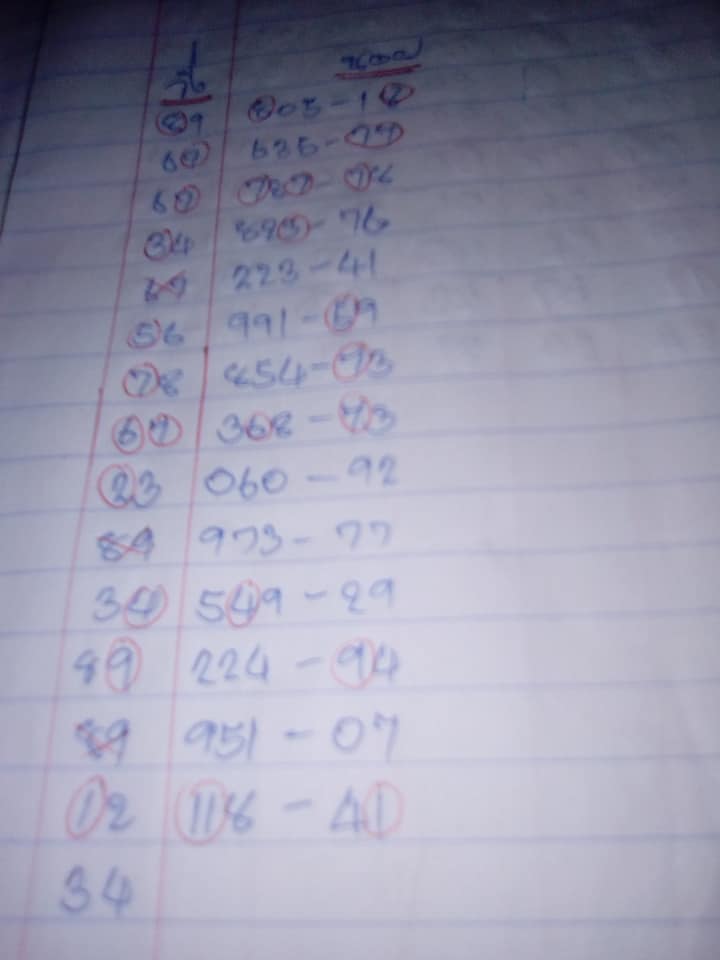 วิ่ง
89 805-18
67 635-77
67 787-78
34 893-76
67 223-41
56 991-59
78 854-73
67 368-73
23 060-92
89 973-77
34 549-29
89 224-94
89 951-07
12 118-41
34